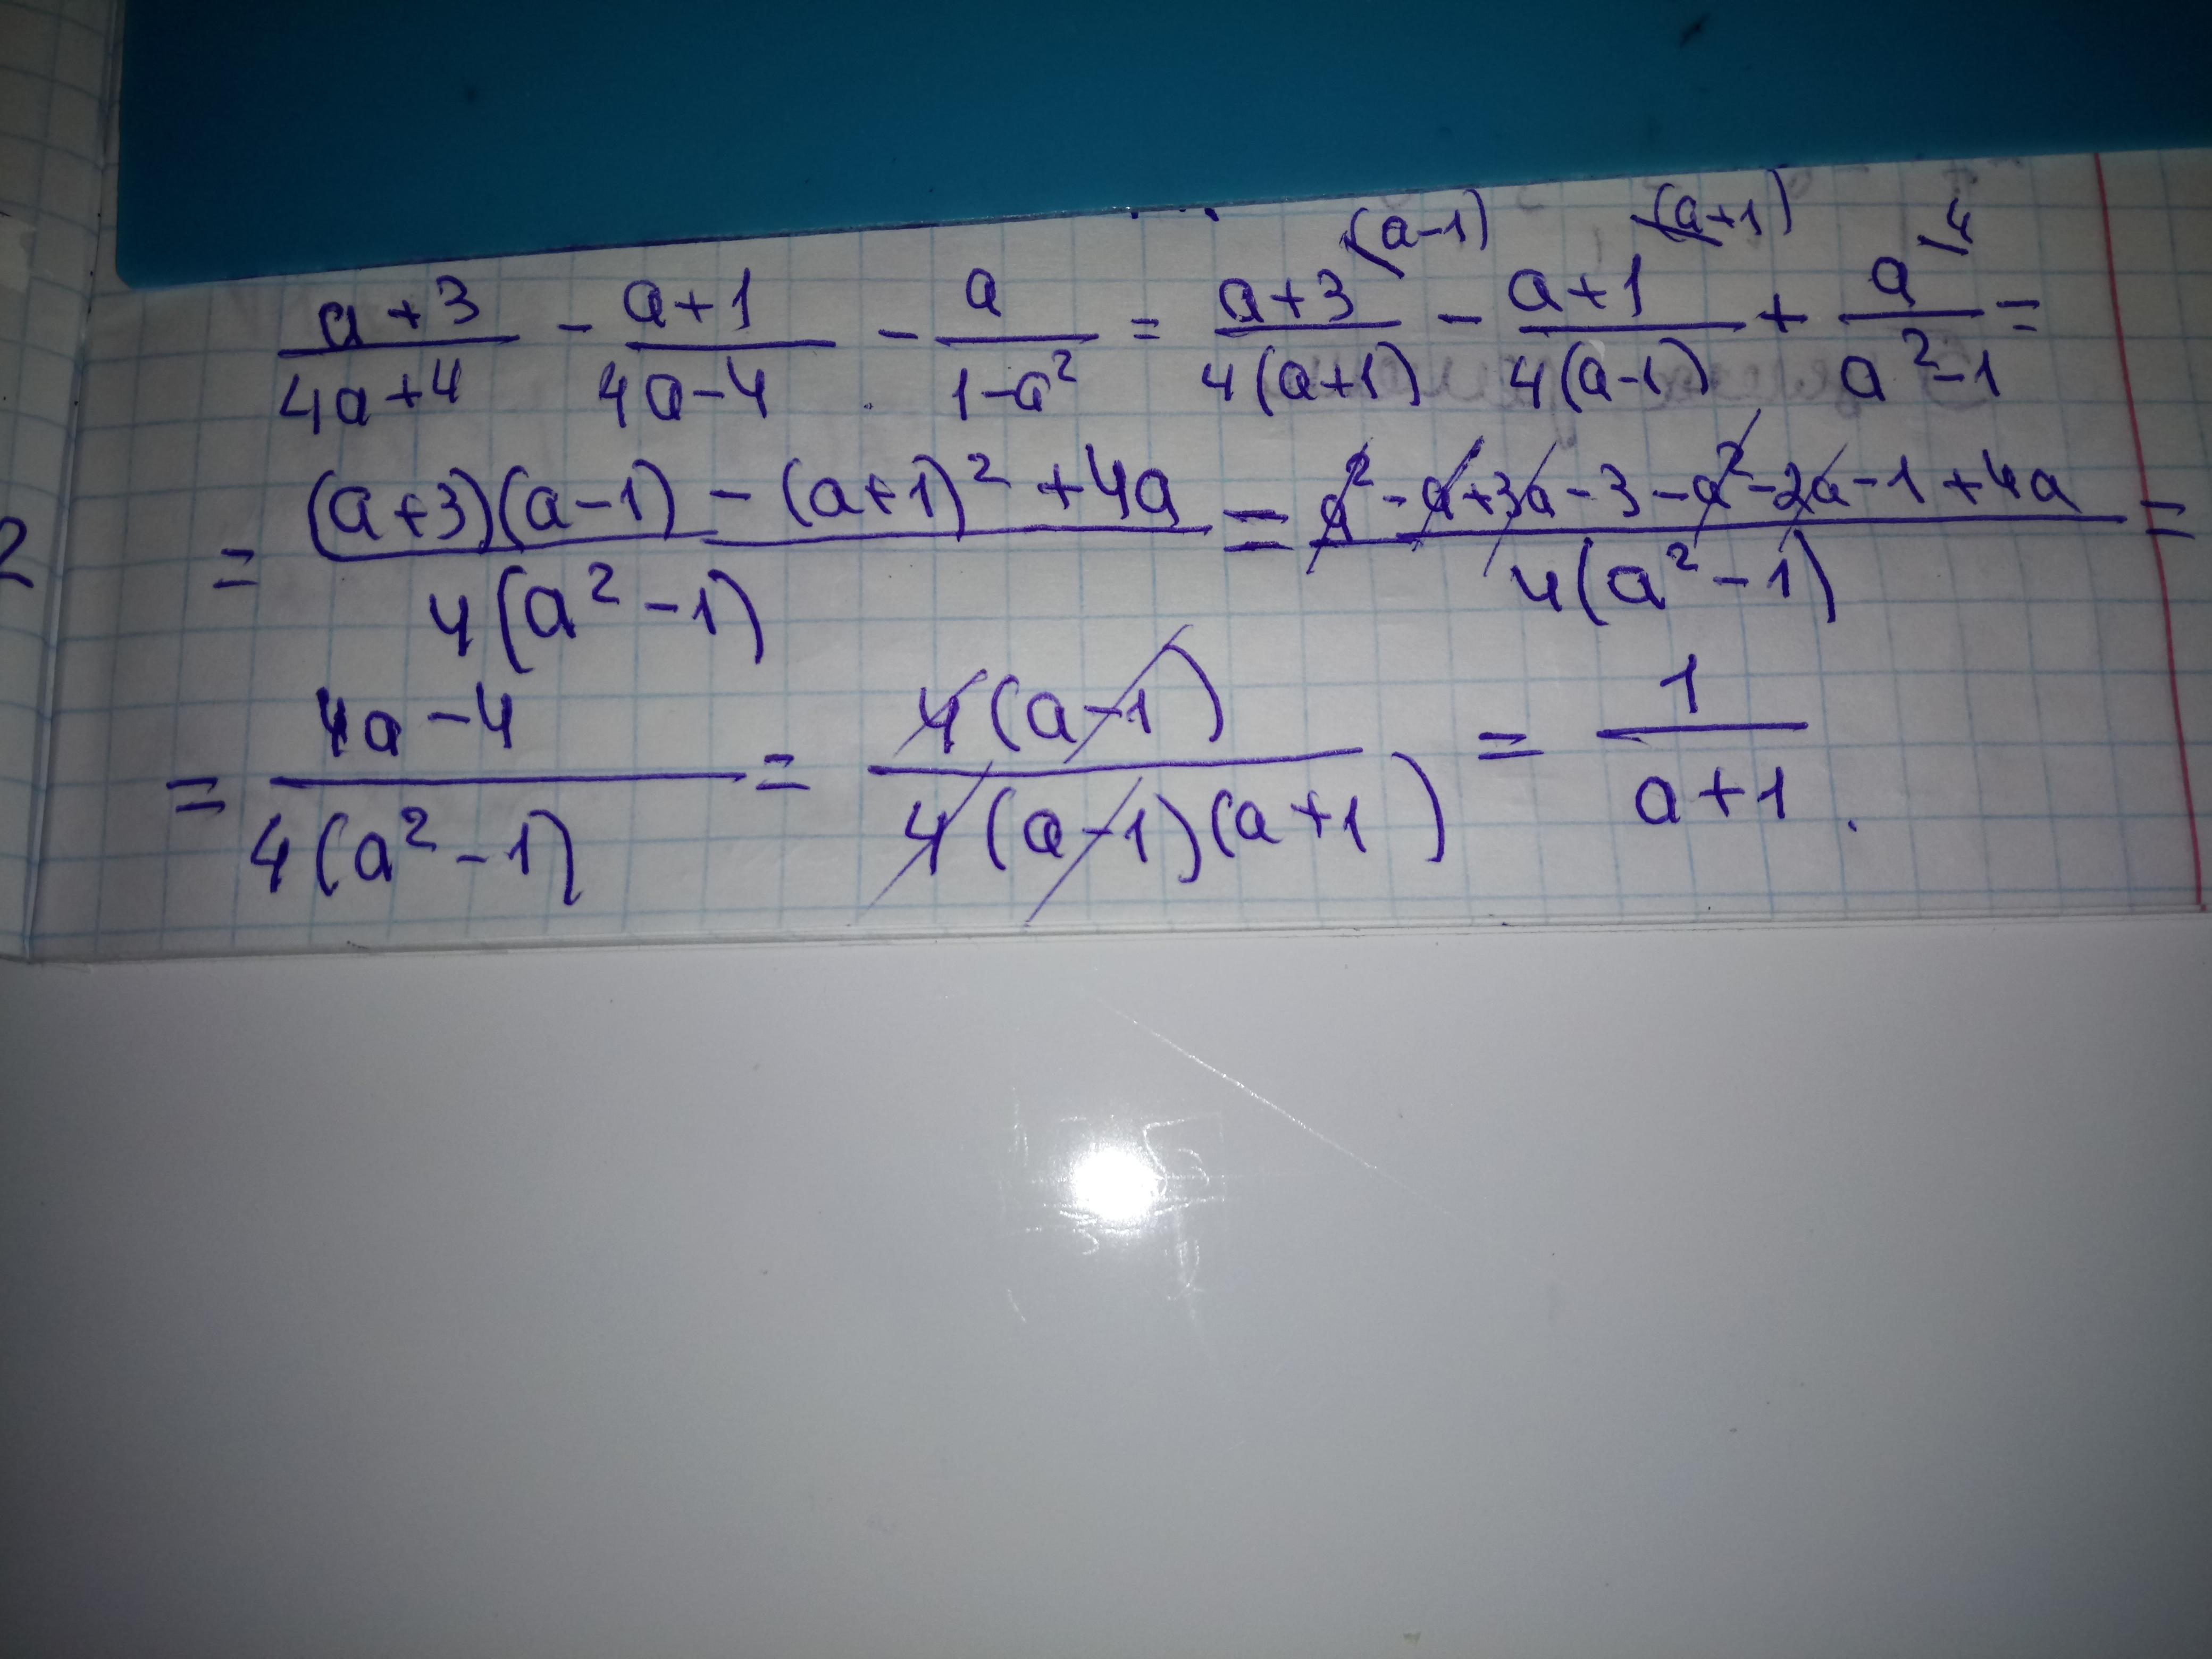 (a-1) (a+1) 4
a+3/4a+4 - a+1/4a-4 - a/1-a² = a+3/4(a+1) - a+1/4(a-1) + a/a²-1 =
= (a+3)(a-1) - (a+1)² + 4a/4(a²-1) = a² - a + 3a - 3 - a² - 2a - 1 + 4a/4(a²-1) =
= 4a-4/4(a²-1) = 4(a-1)/4(a-1)(a+1) = 1/a+1.
2